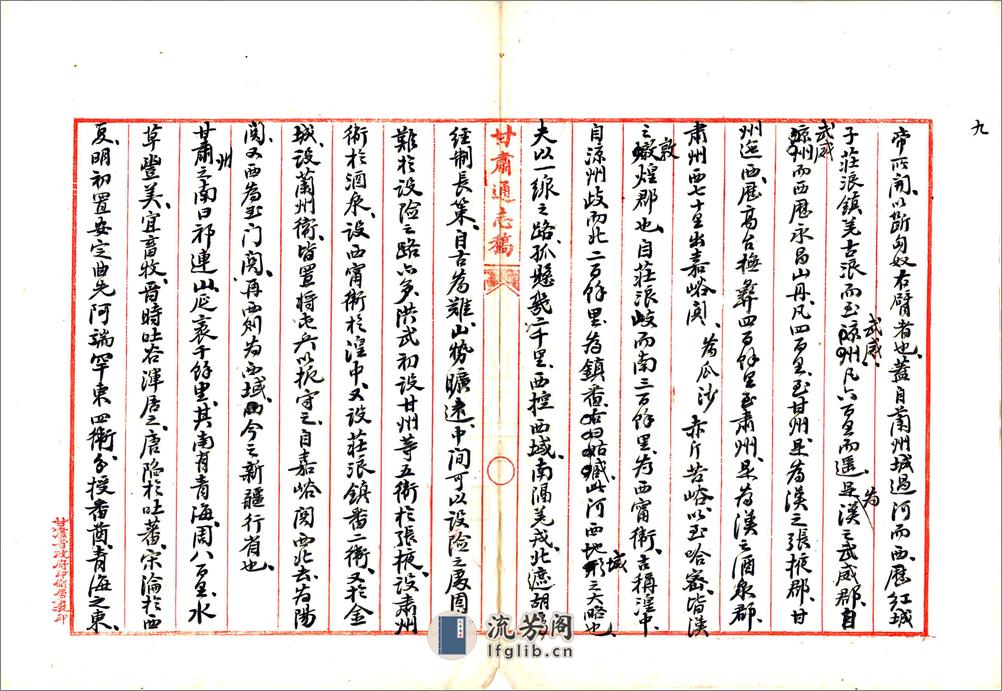 九
帝所開以斷匈奴右臂者也蓋自蘭州城過河而西歷紅城
子莊浪鎮羌古浪而至涼州武威凡六百里而遥是為漢之武威郡自
涼州武威而西歷永昌山丹凡四百里至甘州是為漢之張掖郡甘
州迤西歷高台撫彝四百餘里至肅州是為漢之酒泉郡
肅州西七十里出嘉峪關為瓜沙赤斤苦峪以至哈密皆漢
之燉敦煌郡也自莊浪歧而南三百餘里為西甯衛古稱湟中
自涼州歧而北二百餘里為鎮番此河西地形域之大略也
夫以一線之路孤懸幾二千里西控西域南隔羌戎北遮胡
甘肅通志稿
經制長策自古為難山勢曠遠中間可以設險之處固
難於設險之路亦多洪武初設甘州等五衛於張掖設肅州
衛於酒泉設西甯衛於湟中又設莊浪鎮番二衛又於金
城設蘭州衛皆置將屯兵以扼守之自嘉峪關西北去為陽
關又西為玉門關再西則為西域今之新疆行省也
甘肅州之南曰祁連山延袤千餘里其南有青海周八百里水
草豐美宜畜牧晉時吐谷渾居之唐陷於吐蕃宋淪於西
夏明初置安定曲先阿端罕東四衛分授番酋青海之東
甘肅省政府印刷局製印
流芳阁
lfglib.cn